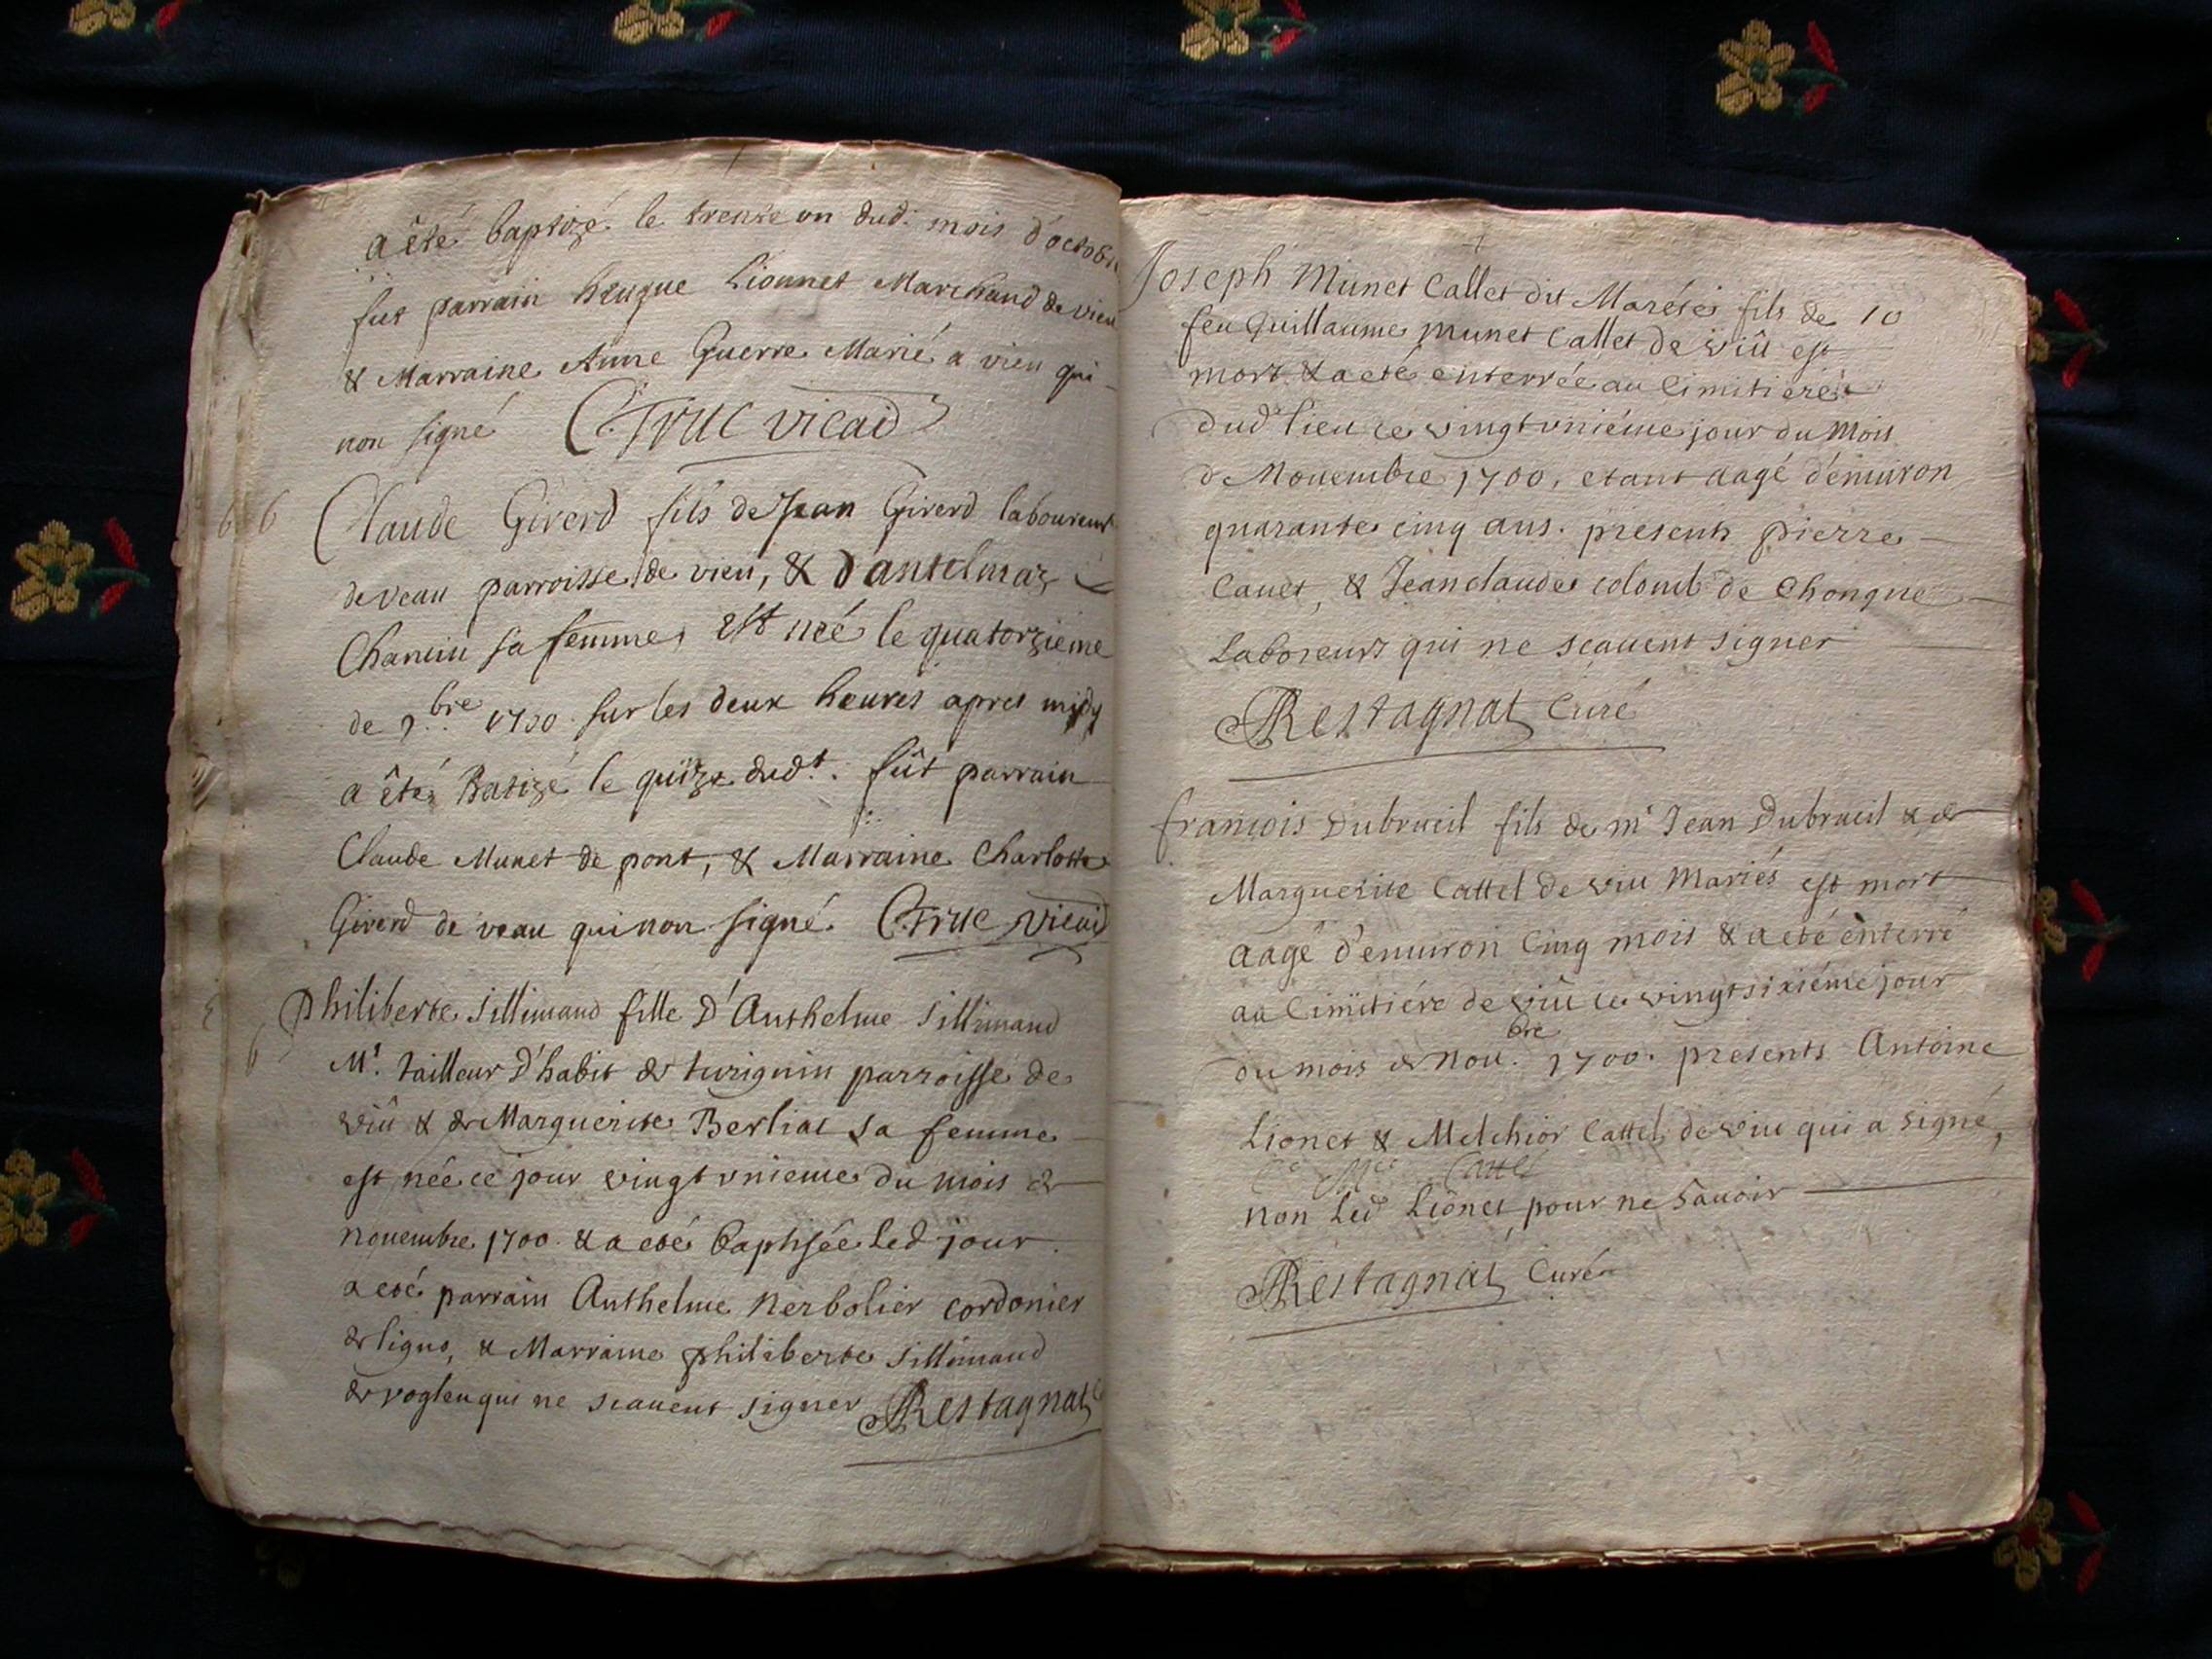 a êté baptizé le trente un dud. mois d'octobre
fut parrain heugue Lionnet Marchand de vieu
& Marraine Anne Guerre Marié a vieu qui
non signé C. Truc vicaid
6 6 Claude Girerd fils de Jean Girerd laboureur
de veau parroisse de vieu, & d'antelmaz
Chanciu sa femme, est neé le quatorzieme
de 9.bre 1700 sur les deux heures apres midy
a êté Batizé le quïze dud.t. fût parrain
Claude Munet de pont, & Marraine Charlotte
Girerd de veau qui non signé. C. Truc vicaid
6 Philiberte Sillimand fille D'Anthelme Sillimand
M.t tailleur D'habit de turignin parroisse de
viû & de Marguerite Berliat sa femme
est née ce jour vingt vnieme du mois de
nouembre 1700 & a eté baptisée led jour.
a eté parrain Anthelme Nerbolier cordonier
de ligno, & Marraine philiberte Sillimand
de vogleu qui ne scauent signer Restagnat
Joseph Munet Callet dit Marétés fils de 10
feu Guillaume Munet Callet de viû est
mort & a eté enterrée au Cimitiére
dud lieu ce vingtvniéme jour du Mois
de Nouembre 1700, etant aagé d'enuiron
quarante cinq ans. presents pierre
Cauet, & Jeanclaude colomb de Chongne
Laboreurs qui ne scauent signer
Restagnat Curé
francois Dubrueil fils de mr Jean Dubrueil & de
Marguerite Cattel de viu Mariés est mort
aagé d'enuiron Cinq mois & a eté enterré
au Cimitiére de viû ce vingtsixiéme jour
du mois de Nou.bre 1700. presents Antoine
Lionet & Melchior Cattel de viu qui a signé,
Cattel
non Led Lionet pour ne Sauoir
Restagnat Curé